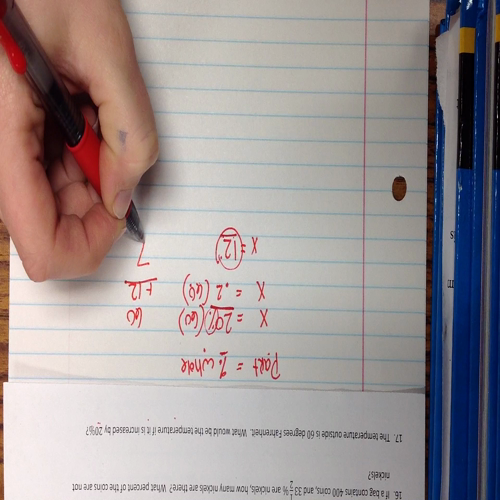 16. If a bag contains 400 coins, and 33 1/3 % are nickels, how many nickels are there? What percent of the coins are not
nickels?
17. The temperature outside is 60 degrees Fahrenheit. What would be the temperature if it is increased by 20%?
Part = % · whole
x = 20% (60) 60
x = .2 (60) +12
x = 12 7